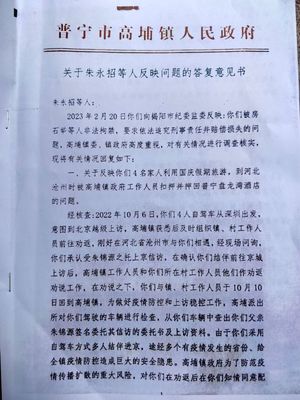 普宁市高埔镇人民政府
关于朱永招等人反映问题的答复意见书
朱永招等人:
2023年2月20日你们向揭阳市纪委监委反映:你们被房
石华等人非法拘禁,要求依法追究刑事责任并赔偿损失的问
题,高埔镇委、镇政府高度重视,对有关情况进行调查核实,
现将有关情况回复如下:
一、关于反映你们4名家人利用国庆假期旅游,到河北
沧州时被高埔镇政府工作人员扣押并押回普宁盘龙湾酒店
的问题。
经核查:2022年10月6日,你们4人自驾车从深圳出发,
意图到北京越级上访,高埔镇获悉后及时组织镇、村工作人
员前往劝返,刚好在河北省沧州市与你们相遇,经现场问询,
你们承认受朱锦源之托上京信访,在确认你们结伴前往京城
上访后,高埔镇工作人员和你们所在村工作人员他们作劝返
劝说工作,在劝说之下,你们与镇、村工作人员于10月10
日回到高埔镇,为做好疫情防控和上访稳控工作,高埔派出
所对你们驾驶的车辆进行检查,从你们车辆中查出你们父亲
朱锦源签名委托其信访的委托书及上访资料。由于你们采用
自驾车方式多人结伴进京,途经多个有疫情发生的省份、给
全镇疫情防控造成巨大的安全隐患。高埔镇政府为了防范疫
情传播扩散的重大风险,对你们在劝返后在你们知情同意配